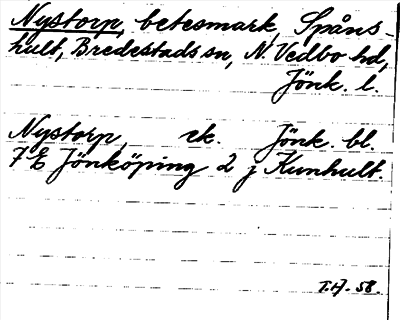 Nystorp, betesmark, Spåns-
hult, Bredestads sn, N. Vedbo hd,
Jönk. l.
Nystorp, ek. Jönk. bl.
7 E Jönköping 2 j Kunhult.
T.H. 58.